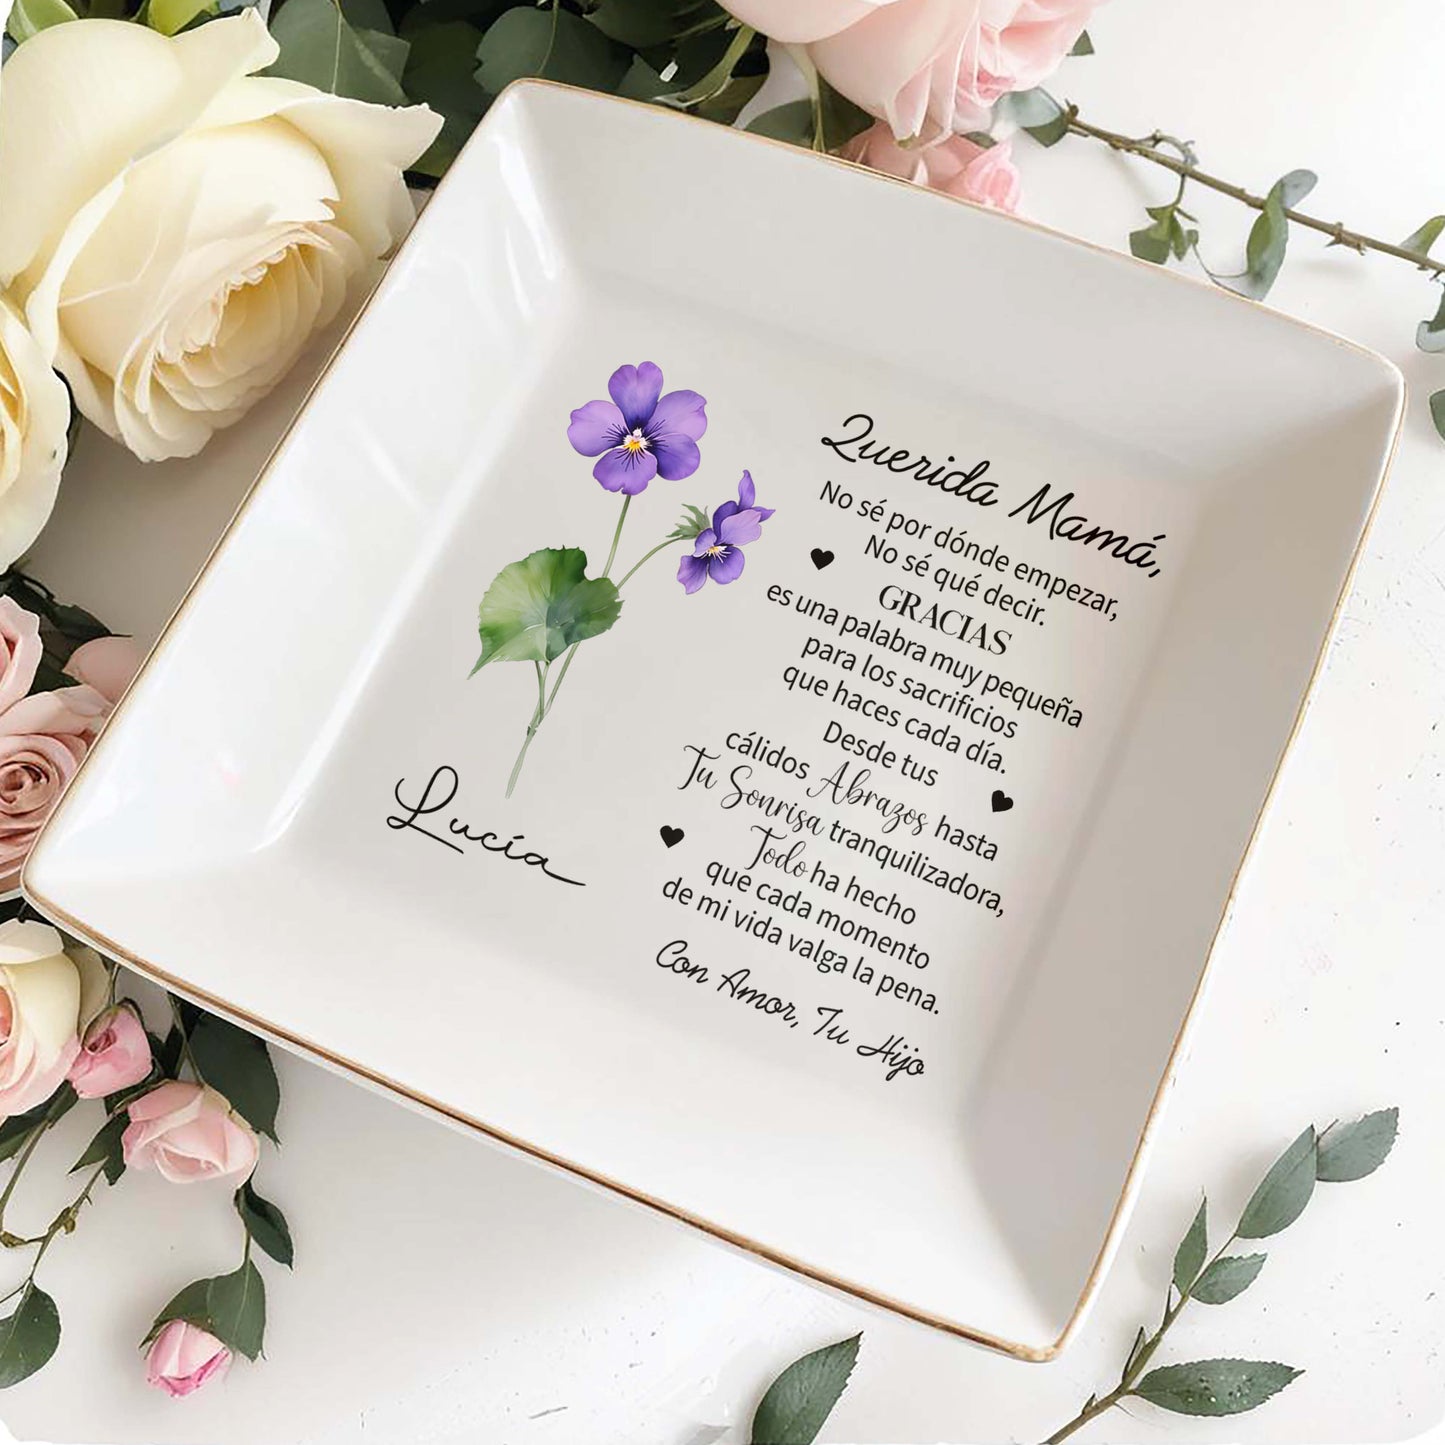 Querida Mamá,
No sé por dónde empezar,
No sé qué decir.
GRACIAS
es una palabra muy pequeña
para los sacrificios
que haces cada día.
Desde tus
cálidos Abrazos hasta
Tu Sonrisa tranquilizadora,
Todo ha hecho
que cada momento
de mi vida valga la pena.
Con Amor, Tu Hijo
Lucía